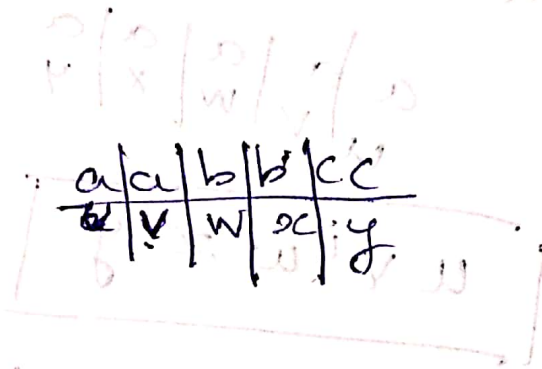 a | a | b | b | cc
u | v | w | x | y